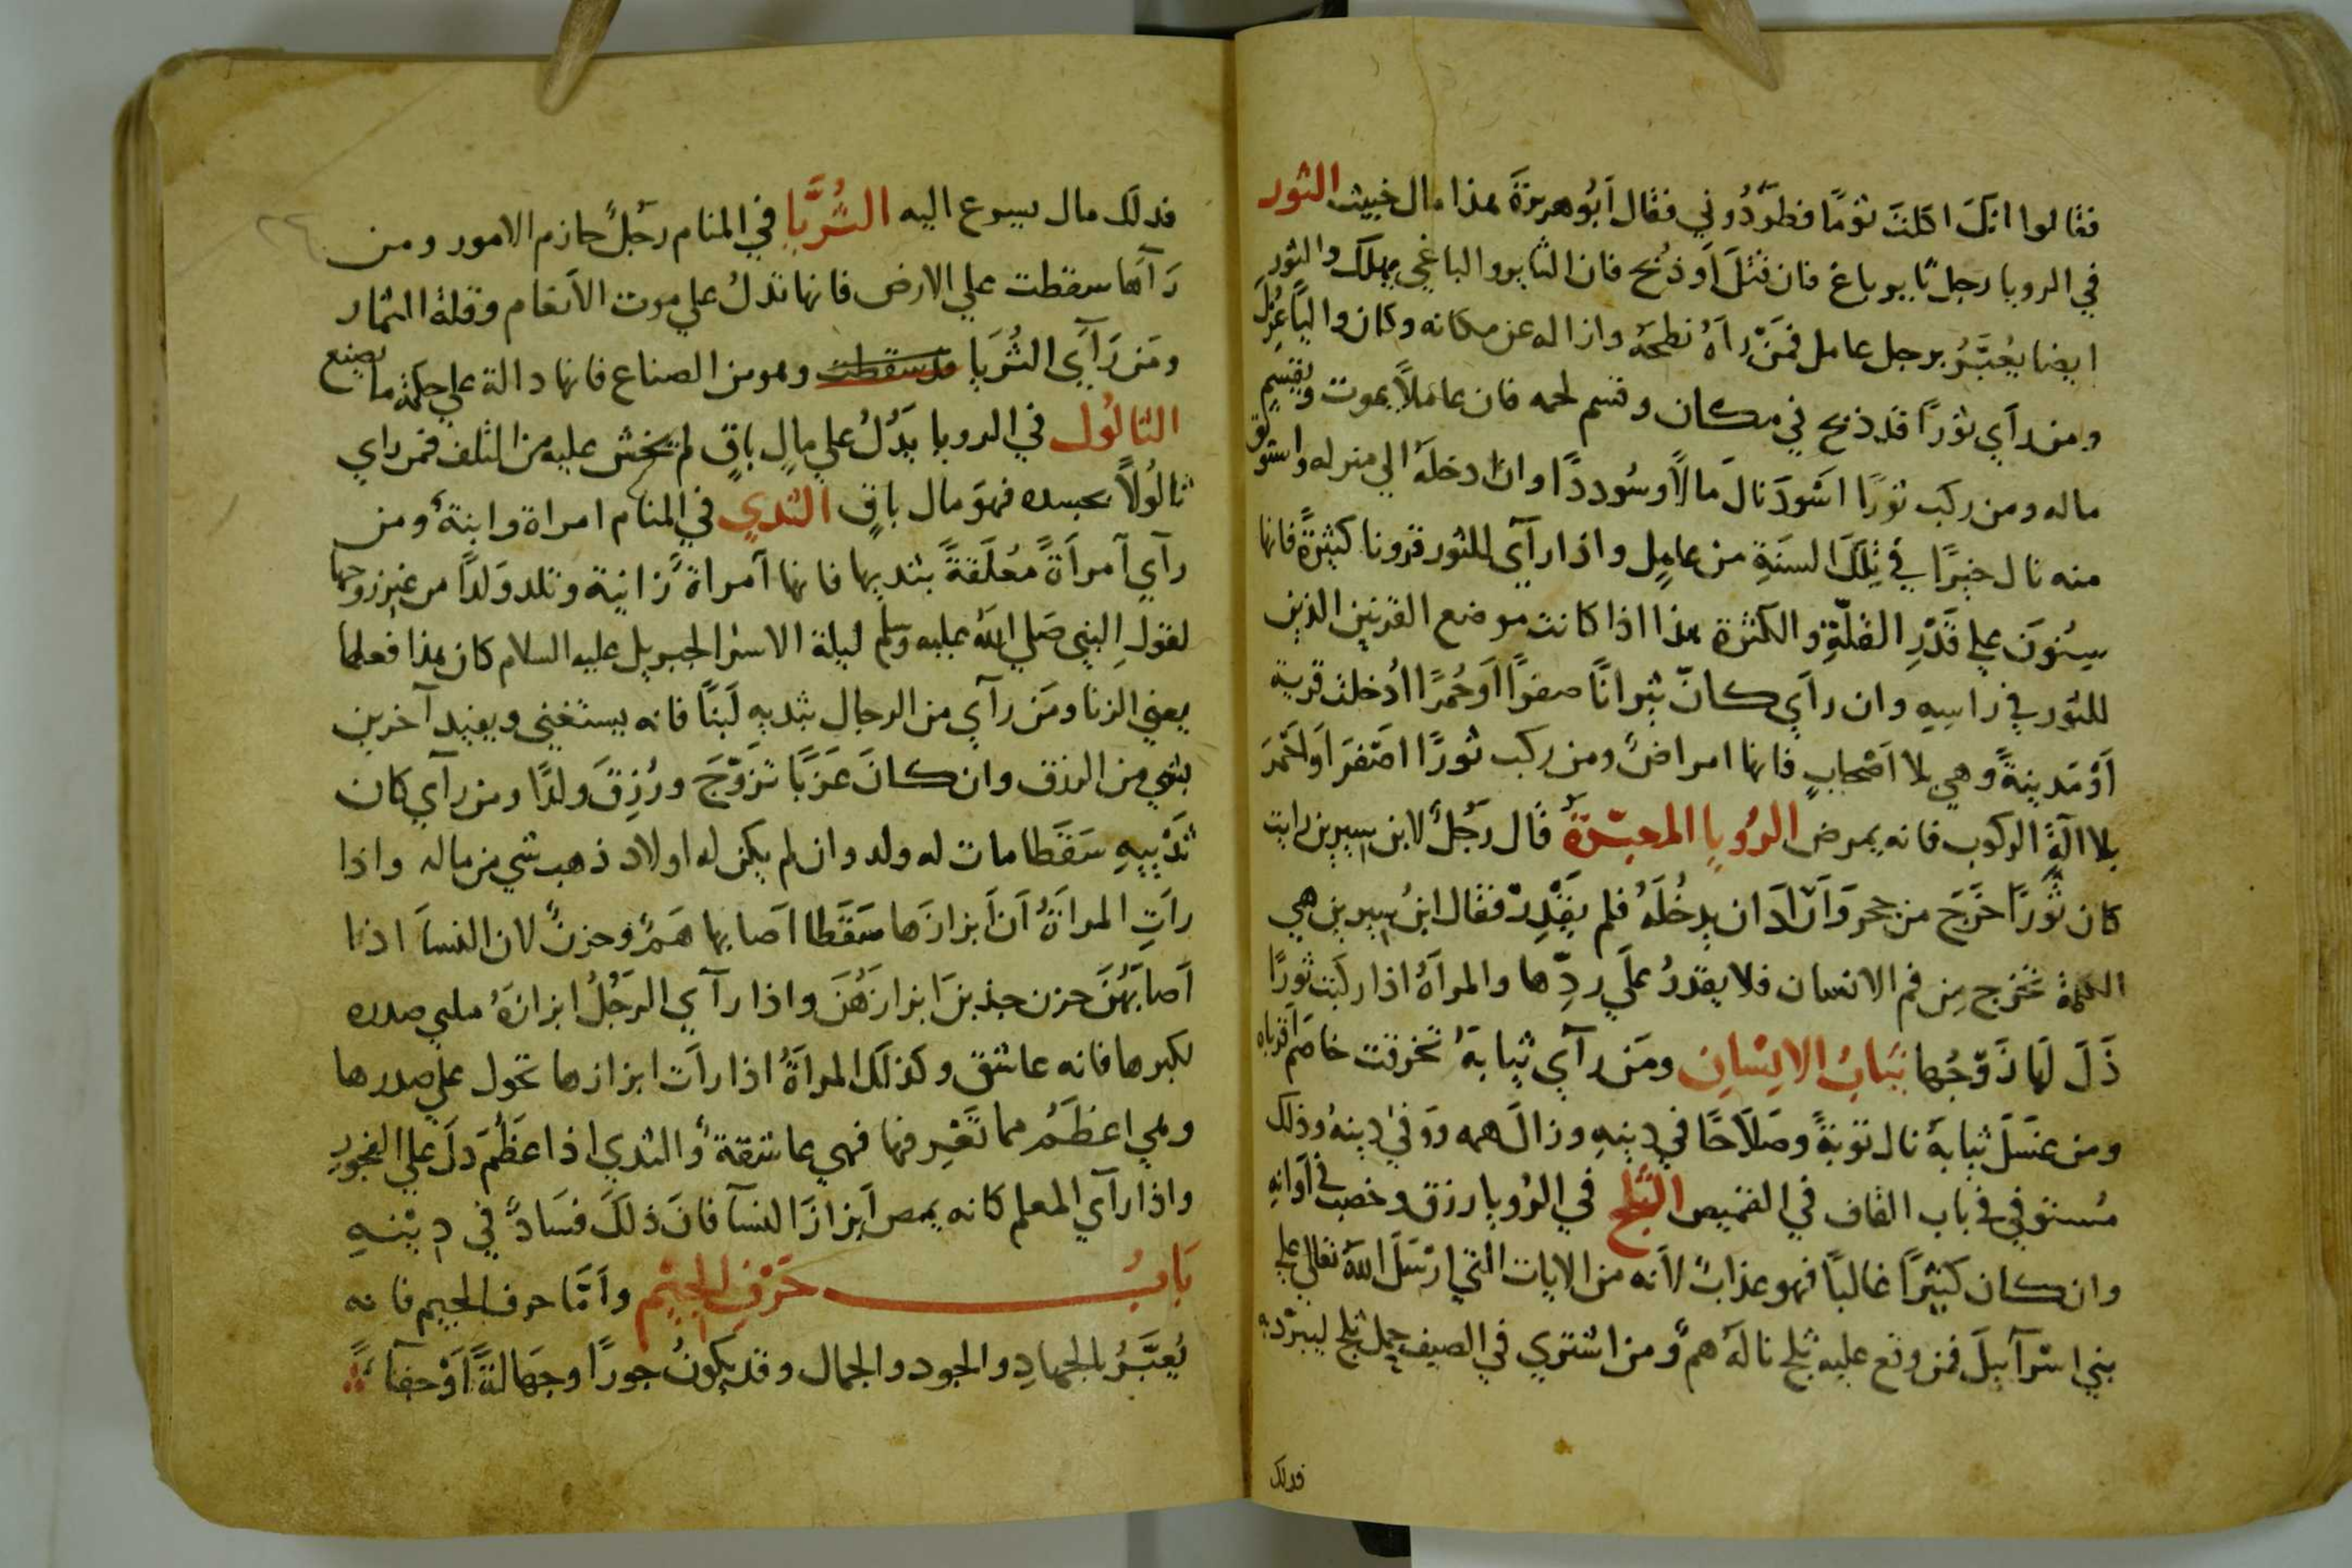 فقالوا انك اكلت ثومًا فطَرَدُوني فقال اَبُو هريرَةَ هذا مال خبيث الثور
في الرويا رجل ثاير باغ فان قُتلَ اَو ذُبح فان الثاير والباغي يهلك والثور
ايضا يُعبَّرُ برجل عامل فمَنْ راَهُ نطحهُ وازاله عن مكانه وكان واليًا عُزلَ
ومن رآَي ثورًا قد ذبح في مكان وقسم لحمه فان عاملاً يموت ويقسم
ماله ومن ركب ثورًا اسْوَدَ نالَ مَالاً وسُودددًا وان ادخلَهُ الي منزله واستوثق
منه نال خيرًا في تِلكَ السنَةِ من عامِلٍ واذا رآَي للثور قرونا كثيرَةً فانها
سِنُونَ علي قَدْرِ القلّةِ والكثرة هذا اذا كانت موضع القرنين الذين
للثور في راسِهِ وان رآَي كانّ ثيرانًا صفرًا اَو حُمرًا ادُخلت قرية
اَوْ مَدينةً وهي بلا اَصْحابٍ فانها امراضٌ ومن ركب ثورًا اصْفَرَ اَو اَحْمَرَ
بلا الَةِ الركوب فانه يمرض الرُويا المعبّرةُ قال رَجُلٌ لابن سيرين رايت
كان ثَورًا خَرَجَ من حجر وَاَرَادَ ان يدخُلَهُ فلم يَقْدِرْ فقال ابنُ سيرين هي
الكلمة تخرج مِن فم الانسان فلا يقدرُ علَي ردّها والمراَةُ اذا ركَبَت ثورًا
ذَلَ لَها زَوْجُها ثيَابُ الانِسْانِ ومَن رآَي ثيابهُ تخرقت خاصَمَ اَقرباه
ومن غسَلَ ثيابهُ نال توبةً وصَلاَحًا في دينِهِ وزالَ همه ووَفي دينهُ وذلك
مُستوفي في باب القاف في القميص الثَلجُ في الرُويا رزق وخصب في اَوَانِهِ
وان كان كثيرًا غالبًا فهو عذابٌ لاَنه من الايات التي ارْسَلَ اللّهُ تعالي علي
بني اسرآييلَ فمن وقع عليه ثلج نالَهُ همٌ ومن اشتري في الصيف حمل ثلج ليبرّد به
فدلك
فدلك مال يسرع اليه الثُرَيَّا في المنام رجُلٌ حازم الامور ومن
رَآَها سقطت علي الارض فانها تدلُ علي موت الاَنعام وقلة الثمار
ومَن رَآَي الثُرَيا قد سقطت وهو من الصناع فانها دالة علي حكمة ما يصنع
الثالُول في الرويا يَدُلُ علي مالٍ باقٍ لم يخش عليه من التلف فمن راي
ثالُولاً بجسده فهو مال باقٍ الثدي في المنام امراة وابنةٌ ومن
رآَي آمرآَةً مُعلَقةً بثدييها فانها آمراةٌ زانية وتلد وَلدًا من غير زوجها
لقولِ النبي صَلي اللّه عليه وسلم ليلة الاسرا لجبريل عليه السلام كان هذا فعلها
يعني الزنا ومَن رآَي من الرجال بثديه لَبنًا فانه يستغني ويفيد آخرين
بشي من الرزق وان كانَ عَزَبًا تزَوْجَ ورُزِقَ ولدًا ومن رآي كان
ثَدْييهِ سَقَطا مات له ولد وان لم يكن له اولاد ذهب شي من ماله واذا
رآَتِ المراَةُ اَن اَبزازَها سَقَطا اَصابها هَمٌ وحزنٌ لان النسآَ اذا
اَصابَهُنَ حزن جذبنَ ابزازَهُنَ واذا رآَي الرَجُلُ ابزازَهُ ملي صدره
لكبرها فانه عاشق وكذلك المراَةُ اذا رآَت ابزازها تحول علي صدرها
وهي اعظَمُ مما تَغَير فها فهي عاشقةٌ والثدي اذا عَظُمَ دَلَ علي الفجورِ
واذا رآَي المعلم كانه يمص اَبزازَ النسآَ فانَ ذلكَ فسَادٌ في دِينْهِ
بَابُ حَرْفِ الجيِمْ واَمَّا حرف الجيم فانه
يُعبَّرُ بالجهادِ والجود والجمال وقد يكونُ جورًا وجَهالةً اَوْ جفآ